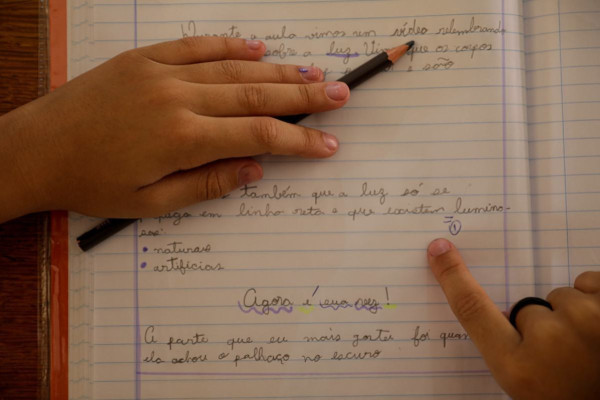 Durante a aula vimos um vídeo relembrando
sobre a luz. Vimos que os corpos
e são
também que a luz só se
paga em linha reta e que existem lumino-
sos:
• naturais
• artificias
Agora é sua vez!
A parte que eu mais gostei foi quan
ela achou o palhaço no escuro